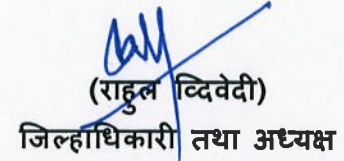 (राहुल व्दिवेदी)
जिल्हाधिकारी तथा अध्यक्ष